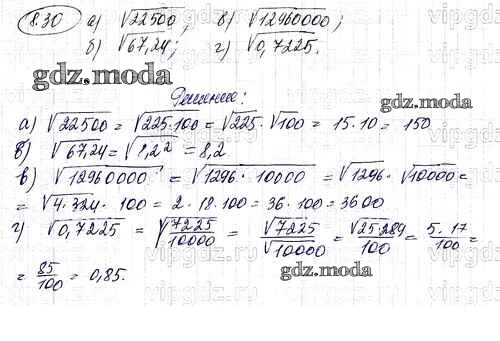 8.30 а) √22500; в) √12960000;
б) √67,24; г) √0,7225.
gdz.moda
gdz.moda
Решение:
а) √22500 = √225·100 = √225·√100 = 15·10 = 150
б) √67,24 = √8,2² = 8,2
в) √12960000 = √1296·10000 = √1296·√10000 =
= √4·324·100 = 2·18·100 = 36·100 = 3600
г) √0,7225 = √7225/10000 = √7225/√10000 = √25·289/100 = 5·17/100 =
= 85/100 = 0,85.
gdz.moda